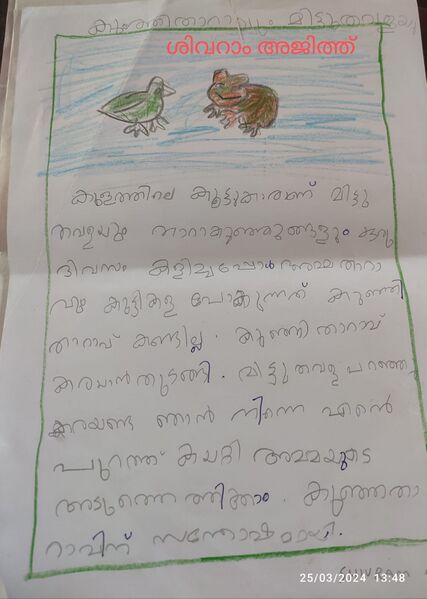 കുഞ്ഞിതാറാവും മിട്ടുതവളയും
ശിവറാം അജിത്ത്
കുളത്തിലെ കൂട്ടുകാരാണ് മിട്ടു
തവളയും താറാകുഞ്ഞുങ്ങളും ഒരു
ദിവസം കളിച്ചപ്പോൾ അമ്മ താറാ
വും കുട്ടികള പോകുന്നത് കുഞ്ഞി
താറാവ് കണ്ടില്ല. കുഞ്ഞി താറാവ്
കരയാൻ തുടങ്ങി. മിട്ടു തവള പറഞ്ഞു
കരയണ്ട ഞാൻ നിന്നെ എൻെ
പുറത്ത് കയറ്റി അമ്മയുടെ
അടുത്തെത്തിക്കാം. കുഞ്ഞിതാ
റാവിന് സന്തോഷമായി.
SHIVRAM
25/03/2024 13:48